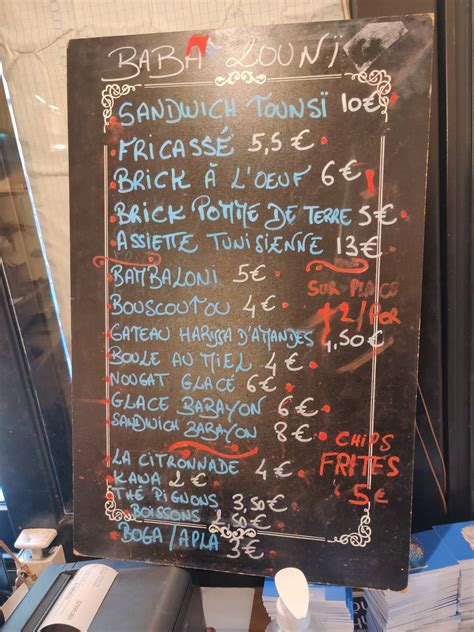 BABA LOUNI
SANDWICH TOUNSÏ 10€
FRICASSÉ 5,5€
BRICK À L'OEUF 6€
BRICK POMME DE TERRE 5€
ASSIETTE TUNISIENNE 13€
BAMBALONI 5€
BOUSCOUTOU 4€
SUR PLACE
+2/POR
GATEAU HARISSA D'AMANDES 4,50€
BOULE AU MIEL 4€
NOUGAT GLACÉ 6€
GLACE BARAYON 6€
SANDWICH BABAYON 8€
CHIPS
FRITES
5€
LA CITRONNADE 4€
KAWA 2€
THÉ PIGNONS 3,50€
BOISSONS 2,50€
BOGA/APLA 3€